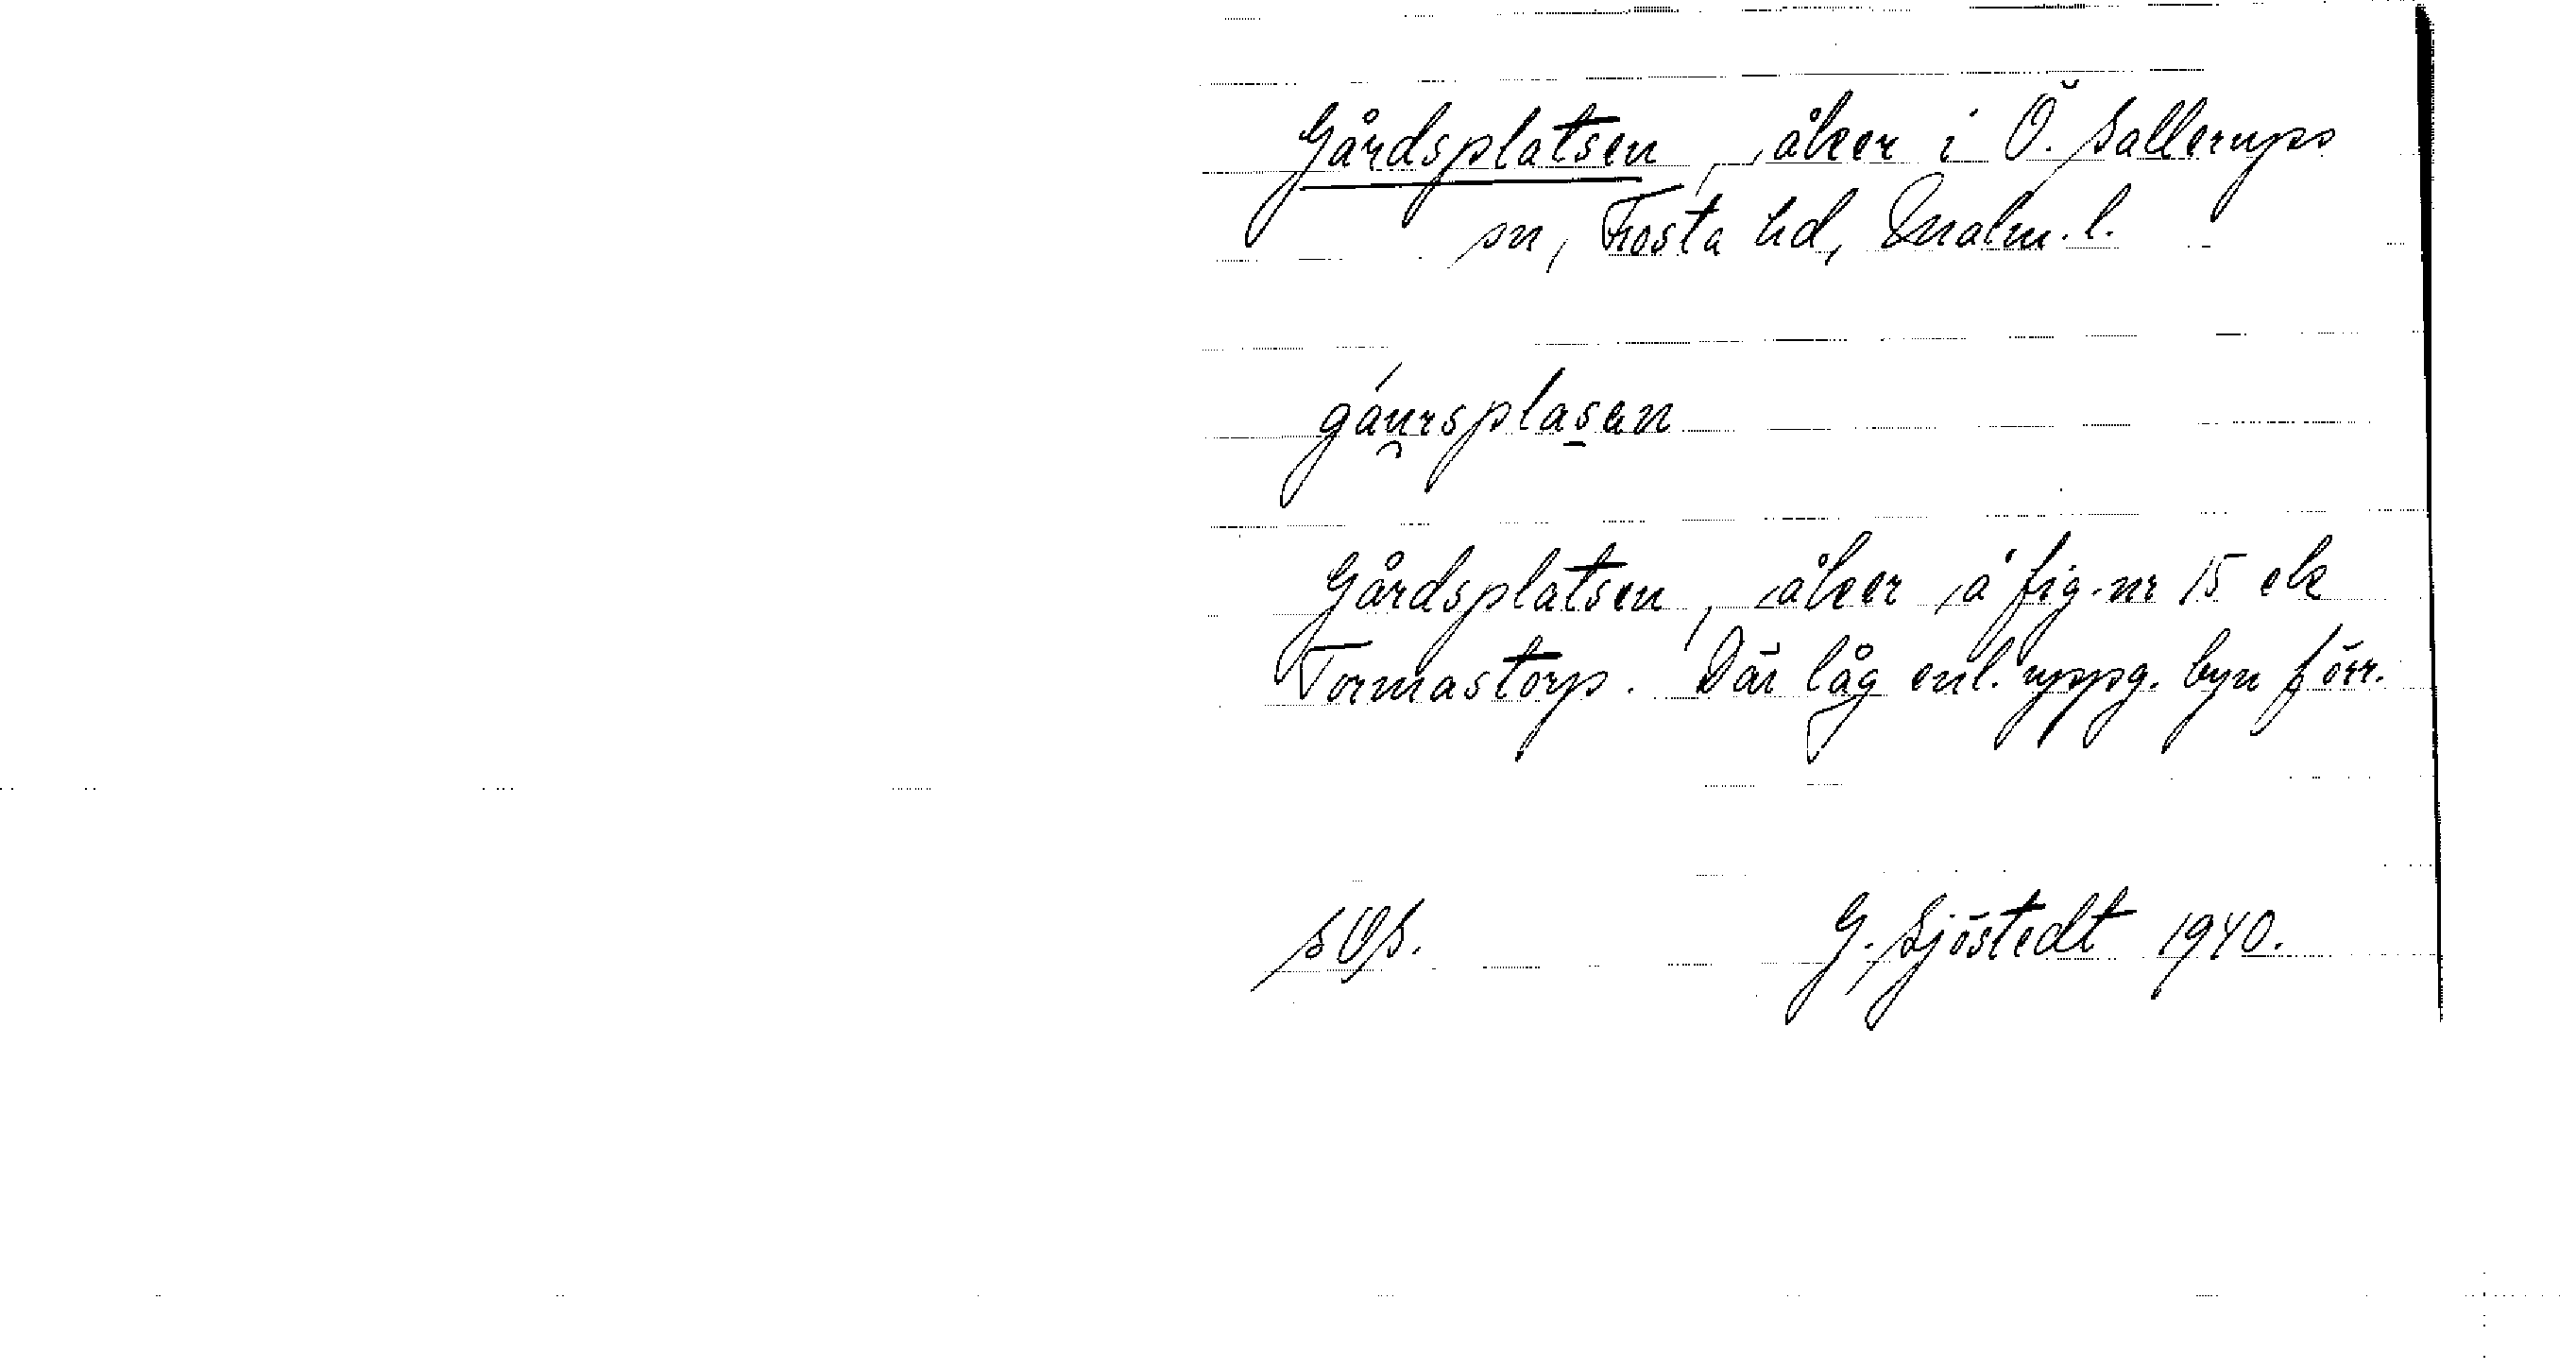 Gårdsplatsen, åker i Ö. Sallerups
sn, Frosta hd, Malm. l.
gáu̯rsplasan
Gårdsplatsen, åker å fig. nr 15 ek
Tormastorp. Där låg enl. uppg. byn förr.
G. Sjöstedt 1940.